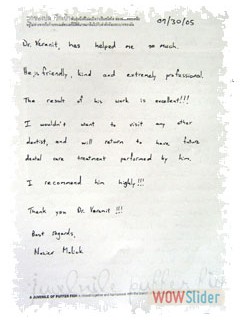 09/30/05
Dr. Veranit, has helped me so much.
He is friendly, kind and extremely professional.
The result of his work is excellent!!!
I wouldn't want to visit any other
dentist, and will return to have future
dental care treatment performed by him.
I recommend him highly!!!
Thank you Dr. Veranit !!!
Best regards,
A JUVENILE OF PUFFER FISH
juvenile puffer fis
WOWSlider